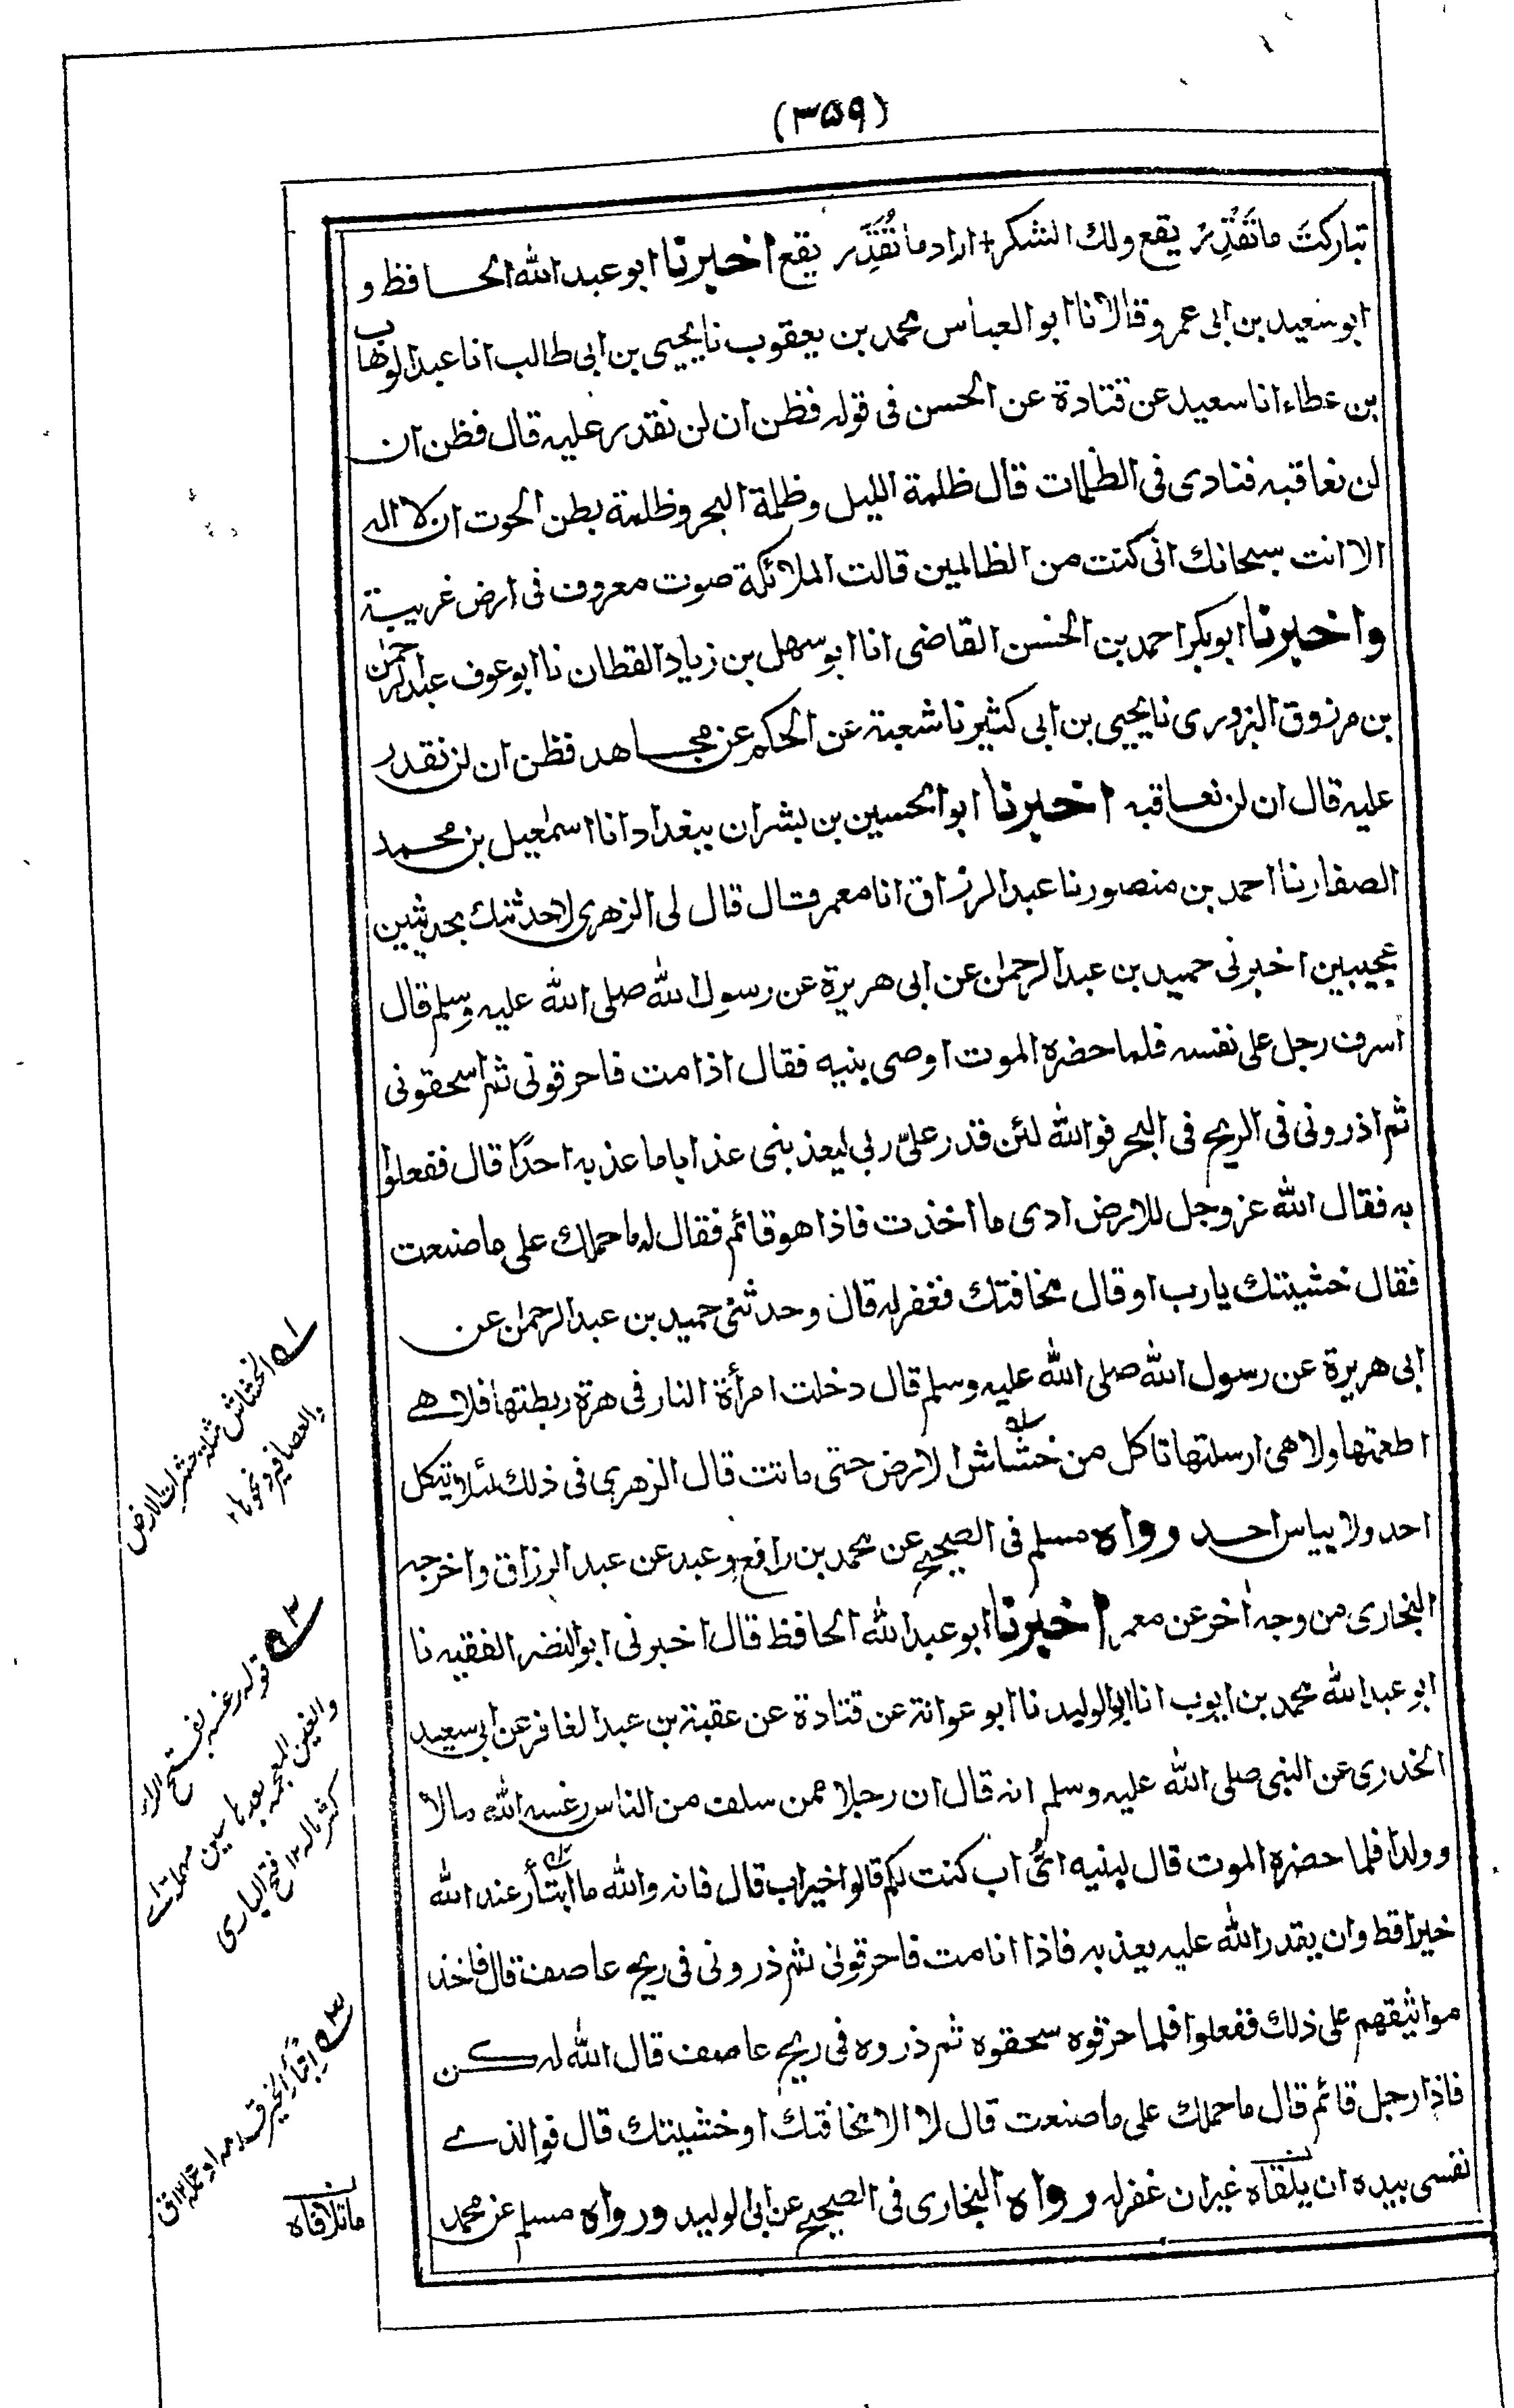 (٣٥٩)
تباركتَ ما تَقْدِرْ يقع ولك الشكر + اراد ما تُقَدِّر يقع اخبرنا ابو عبد الله الحافظ و
ابو سعيد بن ابى عمرو قالا نا ابو العباس محمد بن يعقوب نا يحيى بن ابى طالب انا عبد الوهاب
بن عطاء انا سعيد عن قتادة عن الحسن فى قوله فظن ان لن نقدر عليه قال فظن ان
لن نعاقبه فنادى فى الظلمات قال ظلمة الليل وظلمة البحر وظلمة بطن الحوت ان لا اله
الا انت سبحانك انى كنت من الظالمين قالت الملائكة صوت معروف فى ارض غريبة
واخبرنا ابو بكر احمد بن الحسن القاضى انا ابو سهل بن زياد القطان نا ابو عوف عبد الرحمن
بن مرزوق البزورى نا يحيى بن ابى كثير نا شعبة عن الحكم عن مجاهد فظن ان لن نقدر
عليه قال ان لن نعاقبه اخبرنا ابو الحسين بن بشران ببغداد انا اسمٰعيل بن محمد
الصفار نا احمد بن منصور نا عبد الرزاق انا معمر قال قال لى الزهرى لاحدثنك بحديثين
عجيبين اخبرنى حميد بن عبد الرحمٰن عن ابى هريرة عن رسول الله صلى الله عليه وسلم قال
اسرف رجل على نفسه فلما حضره الموت اوصى بنيه فقال اذا مت فاحرقونى ثم اسحقونى
ثم اذرونى فى الريح فى البحر فوالله لئن قدر علىّ ربى ليعذبنى عذابا ما عذبه احدًا قال ففعلوا
به فقال الله عز وجل للارض ادى ما اخذت فاذا هو قائم فقال له ما حملك على ما صنعت
فقال خشيتك يارب او قال مخافتك فغفر له قال وحدثنى حميد بن عبد الرحمٰن عن
ابى هريرة عن رسول الله صلى الله عليه وسلم قال دخلت امرأة النار فى هرة ربطتها فلا هے
اطعمتها ولا هى ارسلتها تاكل من خشاش الارض حتى ماتت قال الزهرى فى ذلك لئلا يتكل
احد ولا ييأس احد رواه مسلم فى الصحيح عن محمد بن رافع وعبد عن عبد الرزاق واخرجه
البخارى من وجه اٰخر عن معمر اخبرنا ابو عبد الله الحافظ قال اخبرنى ابو النضر الفقيه نا
ابو عبد الله محمد بن ايوب انا ابو الوليد نا ابو عوانة عن قتادة عن عقبة بن عبد الغافر عن ابى سعيد
الخدرى عن النبى صلى الله عليه وسلم انه قال ان رجلا ممن سلف من الناس رغسه الله مالا
وولدا فلما حضره الموت قال لبنيه اىُّ اب كنت لكم قالوا خير اب قال فانه والله ما ابتأر عند الله
خيرا قط وان يقدر الله عليه يعذبه فاذا انا مت فاحرقونى ثم ذرونى فى ريح عاصف قال فاخذ
مواثيقهم على ذلك ففعلوا فلما حرقوه سحقوه ثم ذروه فى ريح عاصف قال الله له كن
فاذا رجل قائم قال ما حملك على ما صنعت قال لا الا مخافتك او خشيتك قال فوالذے
نفسى بيده ان يلقاه غير ان غفر له رواه البخارى فى الصحيح عن ابى الوليد ورواه مسلم عن محمد
له الخشاش مثلثة حشرات الارض
والعصافير ونحوها ١٢
٢ه قوله رغسه بفتح الراء
والغين المعجمة بعدها سين مهملة اے
كثر ماله ١٢ فتح البارى
٣ه ابتأر الخير قدمه او عمله ١٢ ق
ما تلافاه